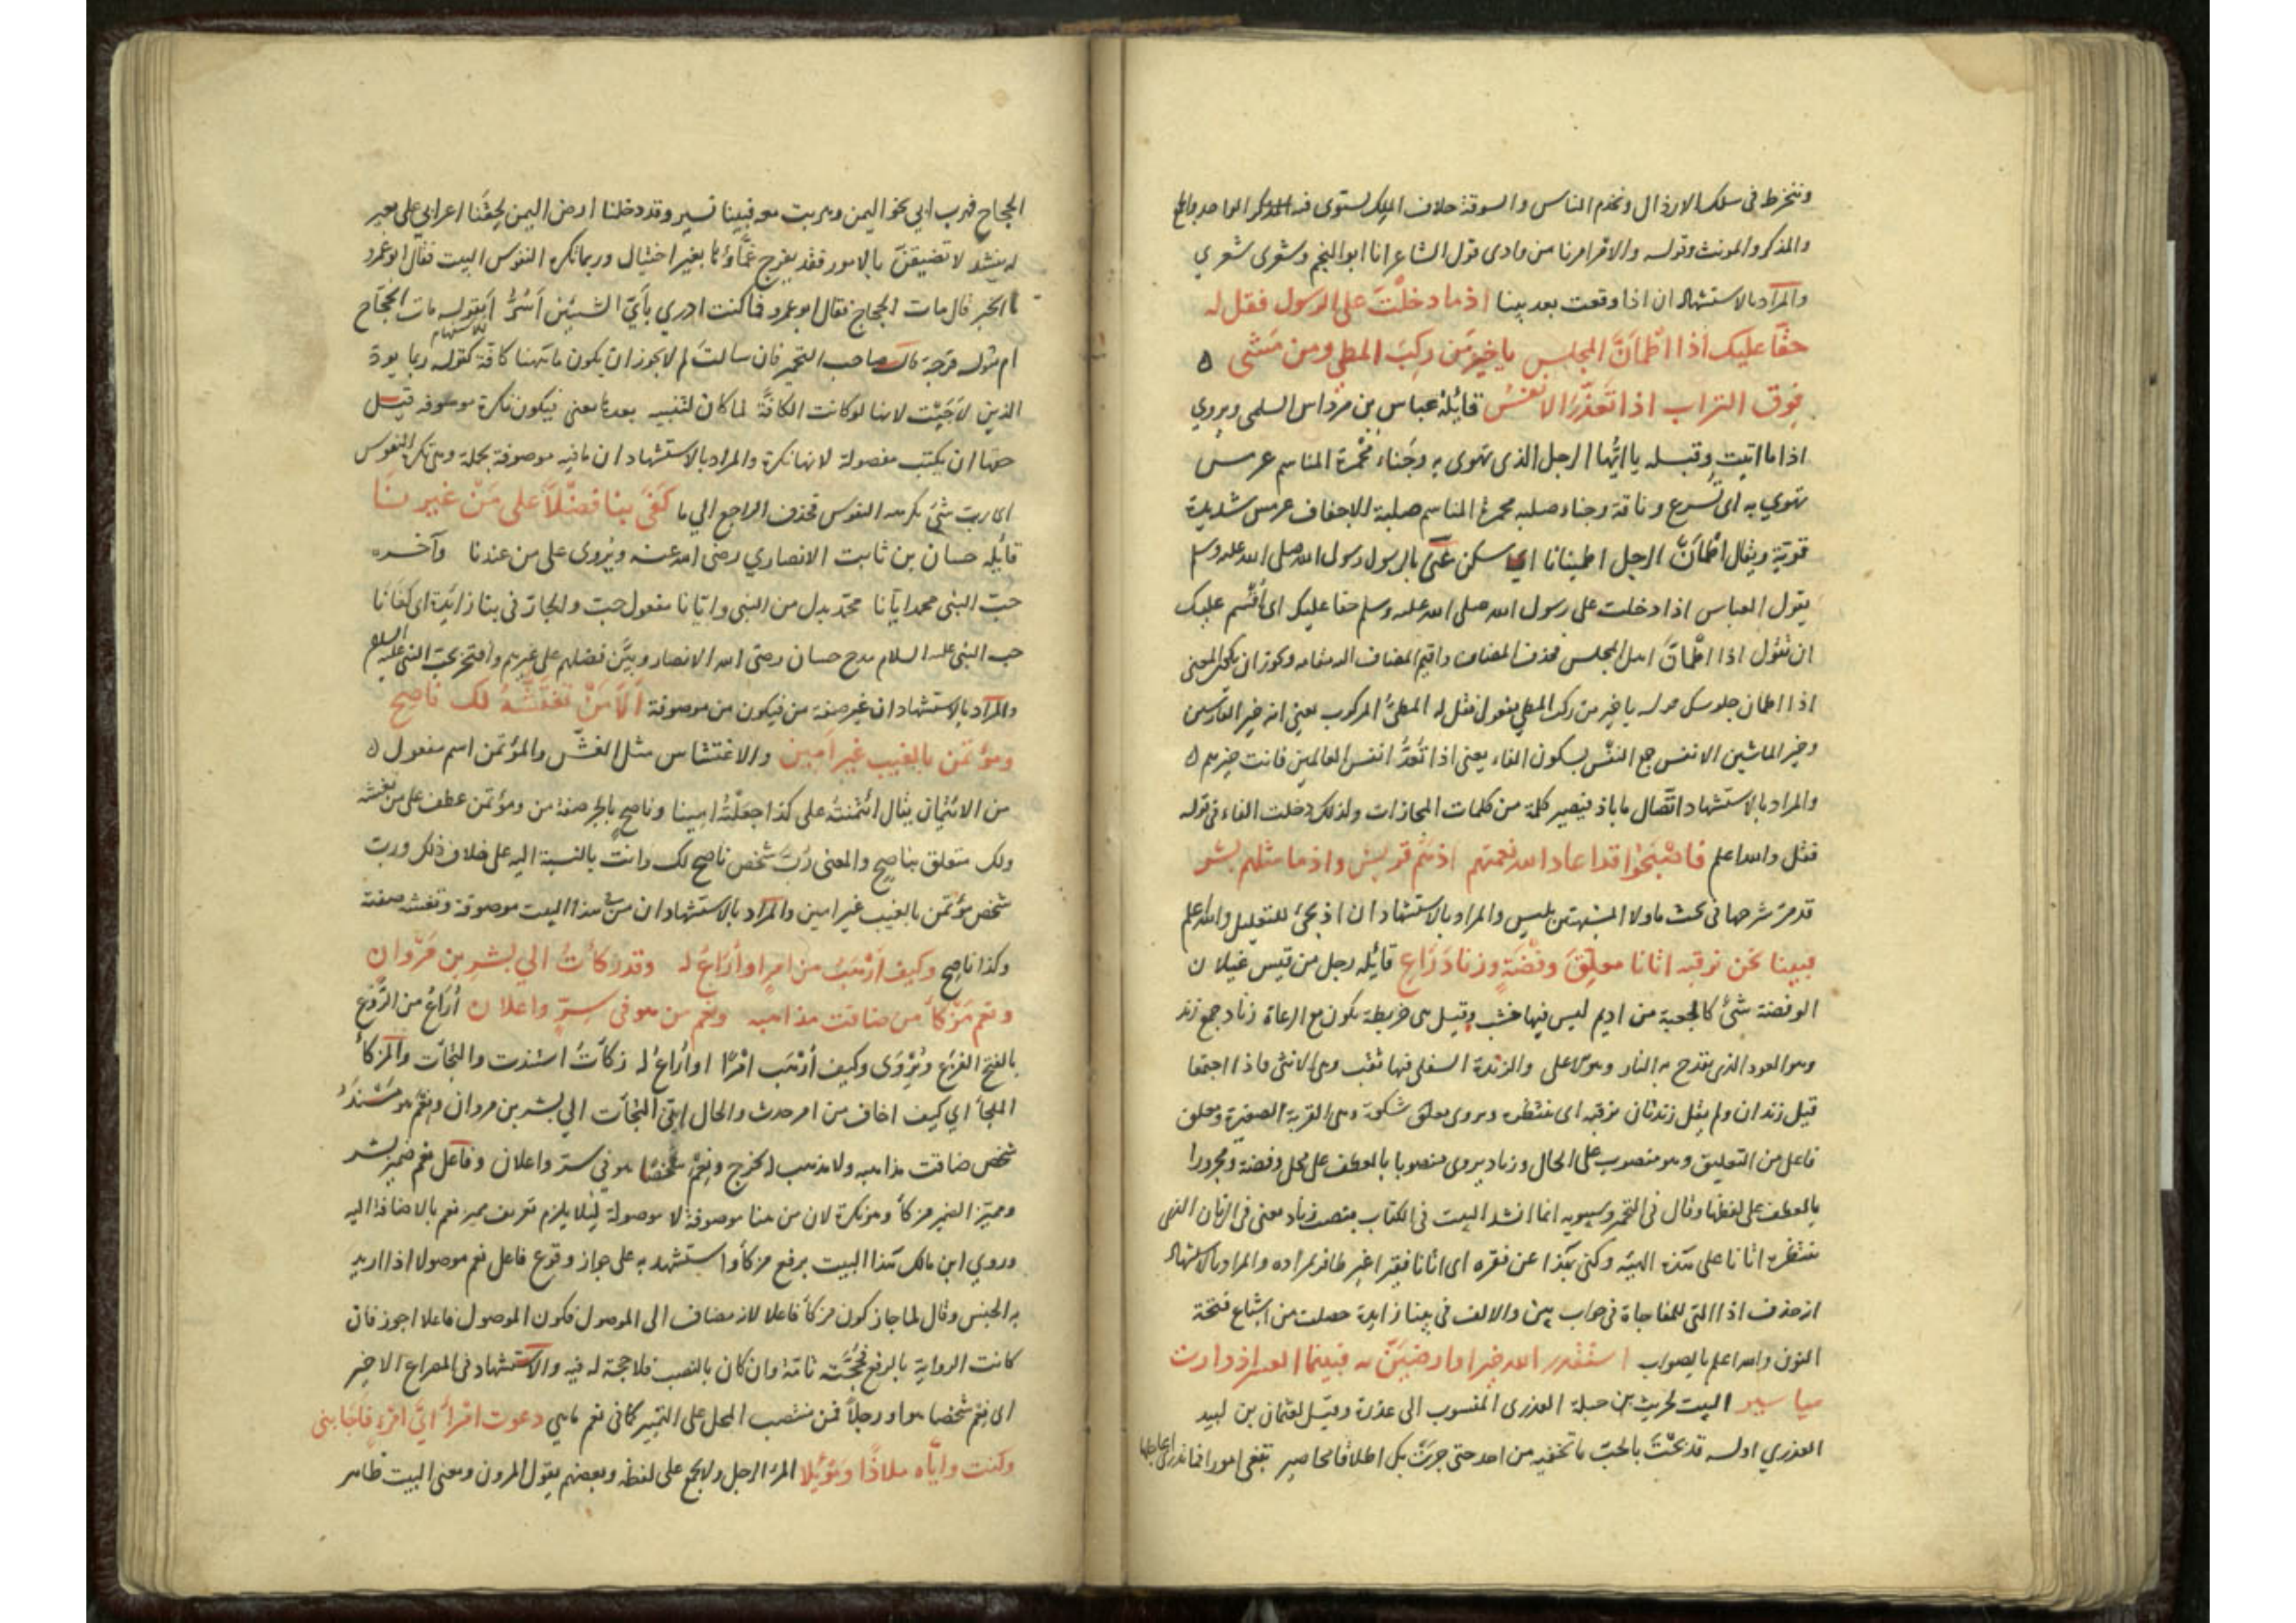 وننخرط فى سلك الارذال ونخدم الناس والسوقة خلاف الملك يستوى فيه الواحد والجمع
والمذكر والمونث وقوله والاقرامرنا من وادى قول الشاعر انا ابو النجم وشعرى شعري
والمراد بالاستشهاد ان اذا وقعت بعد بينا اذ ما دخلت على الرسول فقل له
حقا عليك اذا اطمأن المجلس يا خير من ركب المطي ومن مشى ه
فوق التراب اذا تعد الانفس قائله عباس بن مرداس السلمى ويروي
اذا ما اتيت وقبله يا ايها الرجل الذى تهوى به وجناء مجمرة المناسم عرمس
تهوي به اى تسرع وناقة وجناء صلبه مجمرة المناسم صلبة الاخفاف عرمس شديدة
قوية ويقال اطمأن الرجل اطمينانا اي سكن عنى بالرسول رسول الله صلى الله عليه وسلم
يقول العباس اذا دخلت على رسول الله صلى الله عليه وسلم حقا عليك اى أقسم عليك
ان تقول اذا اطمأن اهل المجلس فحذف المضاف واقيم المضاف اليه مقامه ويجوز ان يكون المعنى
اذا اطمان جلوسك قوله يا خير من ركب المطي يقول فقل له المطى المركوب يعنى انه خير الفارسين
وخير الماشين الانفس جمع النفس بسكون الفاء يعنى اذا تعد انفس العالمين فانت خيرهم ه
والمراد بالاستشهاد اتصال ما باذ فيصير كلمة من كلمات المجازات ولذلك دخلت الفاء فى قوله
فقل والله اعلم فاصبحوا قد اعاد الله نعمتهم اذ هم قريش واذ ما مثلهم بشر
قد مر شرحها فى بحث ما ولا المشبهتين بليس والمراد بالاستشهاد ان اذ يجئ للتعليل والله اعلم
فبينا نحن نرقبه اتانا معلق وفضة وزناد راع قائله رجل من قيس غيلان
الوفضة شئ كالجعبة من اديم ليس فيها خشب وقيل هى خريطة يكون مع الرعاة زناد جمع زند
وهو العود الذى يقدح به النار وهو الاعلى والزندة السفلى فيها ثقب وهى الانثى فاذا اجتمعا
قيل زندان ولم يقل زندتان نرقبه اى ننتظره ويروى معلق شكوة وهى القربة الصغيرة ومعلق
فاعل من التعليق وهو منصوب على الحال وزناد يروى منصوبا بالعطف على محل وفضة ومجرورا
بالعطف على لفظها وقال فى التخمير وسيبويه انما انشد البيت فى الكتاب بنصب زناد معنى فى الزمان الذى
ننتظره اتانا على هذه الهيئه وكنى بهذا عن فقره اى اتانا فقيرا غير ظافر بمراده والمراد بالاستشهاد
ان حذف اذا التى للمفاجاة فى جواب بين والالف فى بينا زايدة حصلت من اشباع فتحة
النون والله اعلم بالصواب استقدر الله خيرا وارضين به فبينما العسر اذ دارت
مياسير البيت لحريث بن جبلة العذرى المنسوب الى عذرة وقيل لعثمان بن لبيد
العذري اوله قد بحت بالحب ما تخفيه من احد حتى جرت بك اطلاقا محاصير تبغى امورا فما تدرى اعاجلها
الحجاج فهرب ابي نحو اليمن وهربت معه فبينا نسير وقد دخلنا ارض اليمن لحقنا اعرابي على بعير
له ينشد لا تضيقن بالامور فقد يفرج غماؤها بغير احتيال وربما تكره النفوس البيت فقال ابو عمرو
ما الخبر قال مات الحجاج فقال ابو عمرو فما كنت ادري بأي الشيئين اسر أبقوله مات الحجاج
ام بقوله فرجة قال صاحب التخمير فان سالت لم لا يجوز ان يكون ما ههنا كافة كقوله ربما يود
الذين اجبت لانها لو كانت الكافة لما كان لتنبيه بعدها معنى فيكون نكرة موصوفه قيل
حقها ان يكتب مفصولة لانها نكرة والمراد بالاستشهاد ان ما فيه موصوفة بجملة وهى تكره النفوس
اى رب شئ يكرهه النفوس فحذف الراجع الي ما كفى بنا فضلا على من غيرنا
قائله حسان بن ثابت الانصاري رضى الله عنه ويروى على من عندنا وآخره
حب النبى محمد ايانا محمد بدل من النبى وايانا مفعول حب والجار فى بنا زائدة اى كفانا
حب النبى عليه السلام مدح حسان رضى الله الانصار وبين فضلهم على غيرهم وافتخر بحب النبى عليه السلام
والمراد بالاستشهاد ان غير صفة من فيكون من موصوفة ألا من تغتشه لك ناصح
ومؤتمن بالغيب غير امين والاغتشاس مثل الغش والمؤتمن اسم مفعول ه
من الائتمان يقال ائتمنته على كذا جعلته امينا وناصح بالجر صفة من ومؤتمن عطف على من تغتشه
ولك متعلق بناصح والمعنى رب شخص ناصح لك وانت بالنسبة اليه على خلاف ذلك ورب
شخص مؤتمن بالغيب غير امين والمراد بالاستشهاد ان من فى هذا البيت موصوفة وتغتشه صفته
وكذا ناصح وكيف ارهب من امر او أراع له وقد زكأت الي بشر بن مروان
ونعم مزكأ من ضاقت مذاهبه ونعم من هو فى سر واعلان أراع من الروع
بالفتح الفزع ويروى وكيف أرهب امرا او أراع له زكأت استندت والتجأت والمزكأ
الملجأ اي كيف اخاف من امر حدث والحال انى التجأت الي بشر بن مروان ونعم هو مستند
شخص ضاقت مذاهبه ولا مذهب له يخرج ونعم شخصا هو في سر واعلان وفاعل نعم ضمير بشر
ومميز الضمير مزكأ وهو نكرة لان من هنا موصوفة لا موصولة لئلا يلزم تعريف مميز نعم بالاضافة اليه
وروي ابن مالك هذا البيت برفع مزكأ واستشهد به على جواز وقوع فاعل نعم موصولا اذا اريد
به الجنس وقال لما جاز كون مزكأ فاعلا لانه مضاف الى الموصول فكون الموصول فاعلا اجوز فان
كانت الرواية بالرفع فحجته تامة وان كان بالنصب فلا حجة له فيه والاستشهاد فى المصراع الاخير
اى نعم شخصا هو او رجلا فمن منتصب المحل على التمييز كما فى نعم ما هي دعوت امرأ اي امرء فاجابنى
وكنت واياه ملاذا وموئلا المرء الرجل ولا يجمع على لفظه وبعضهم يقول المرون ومعنى البيت ظاهر